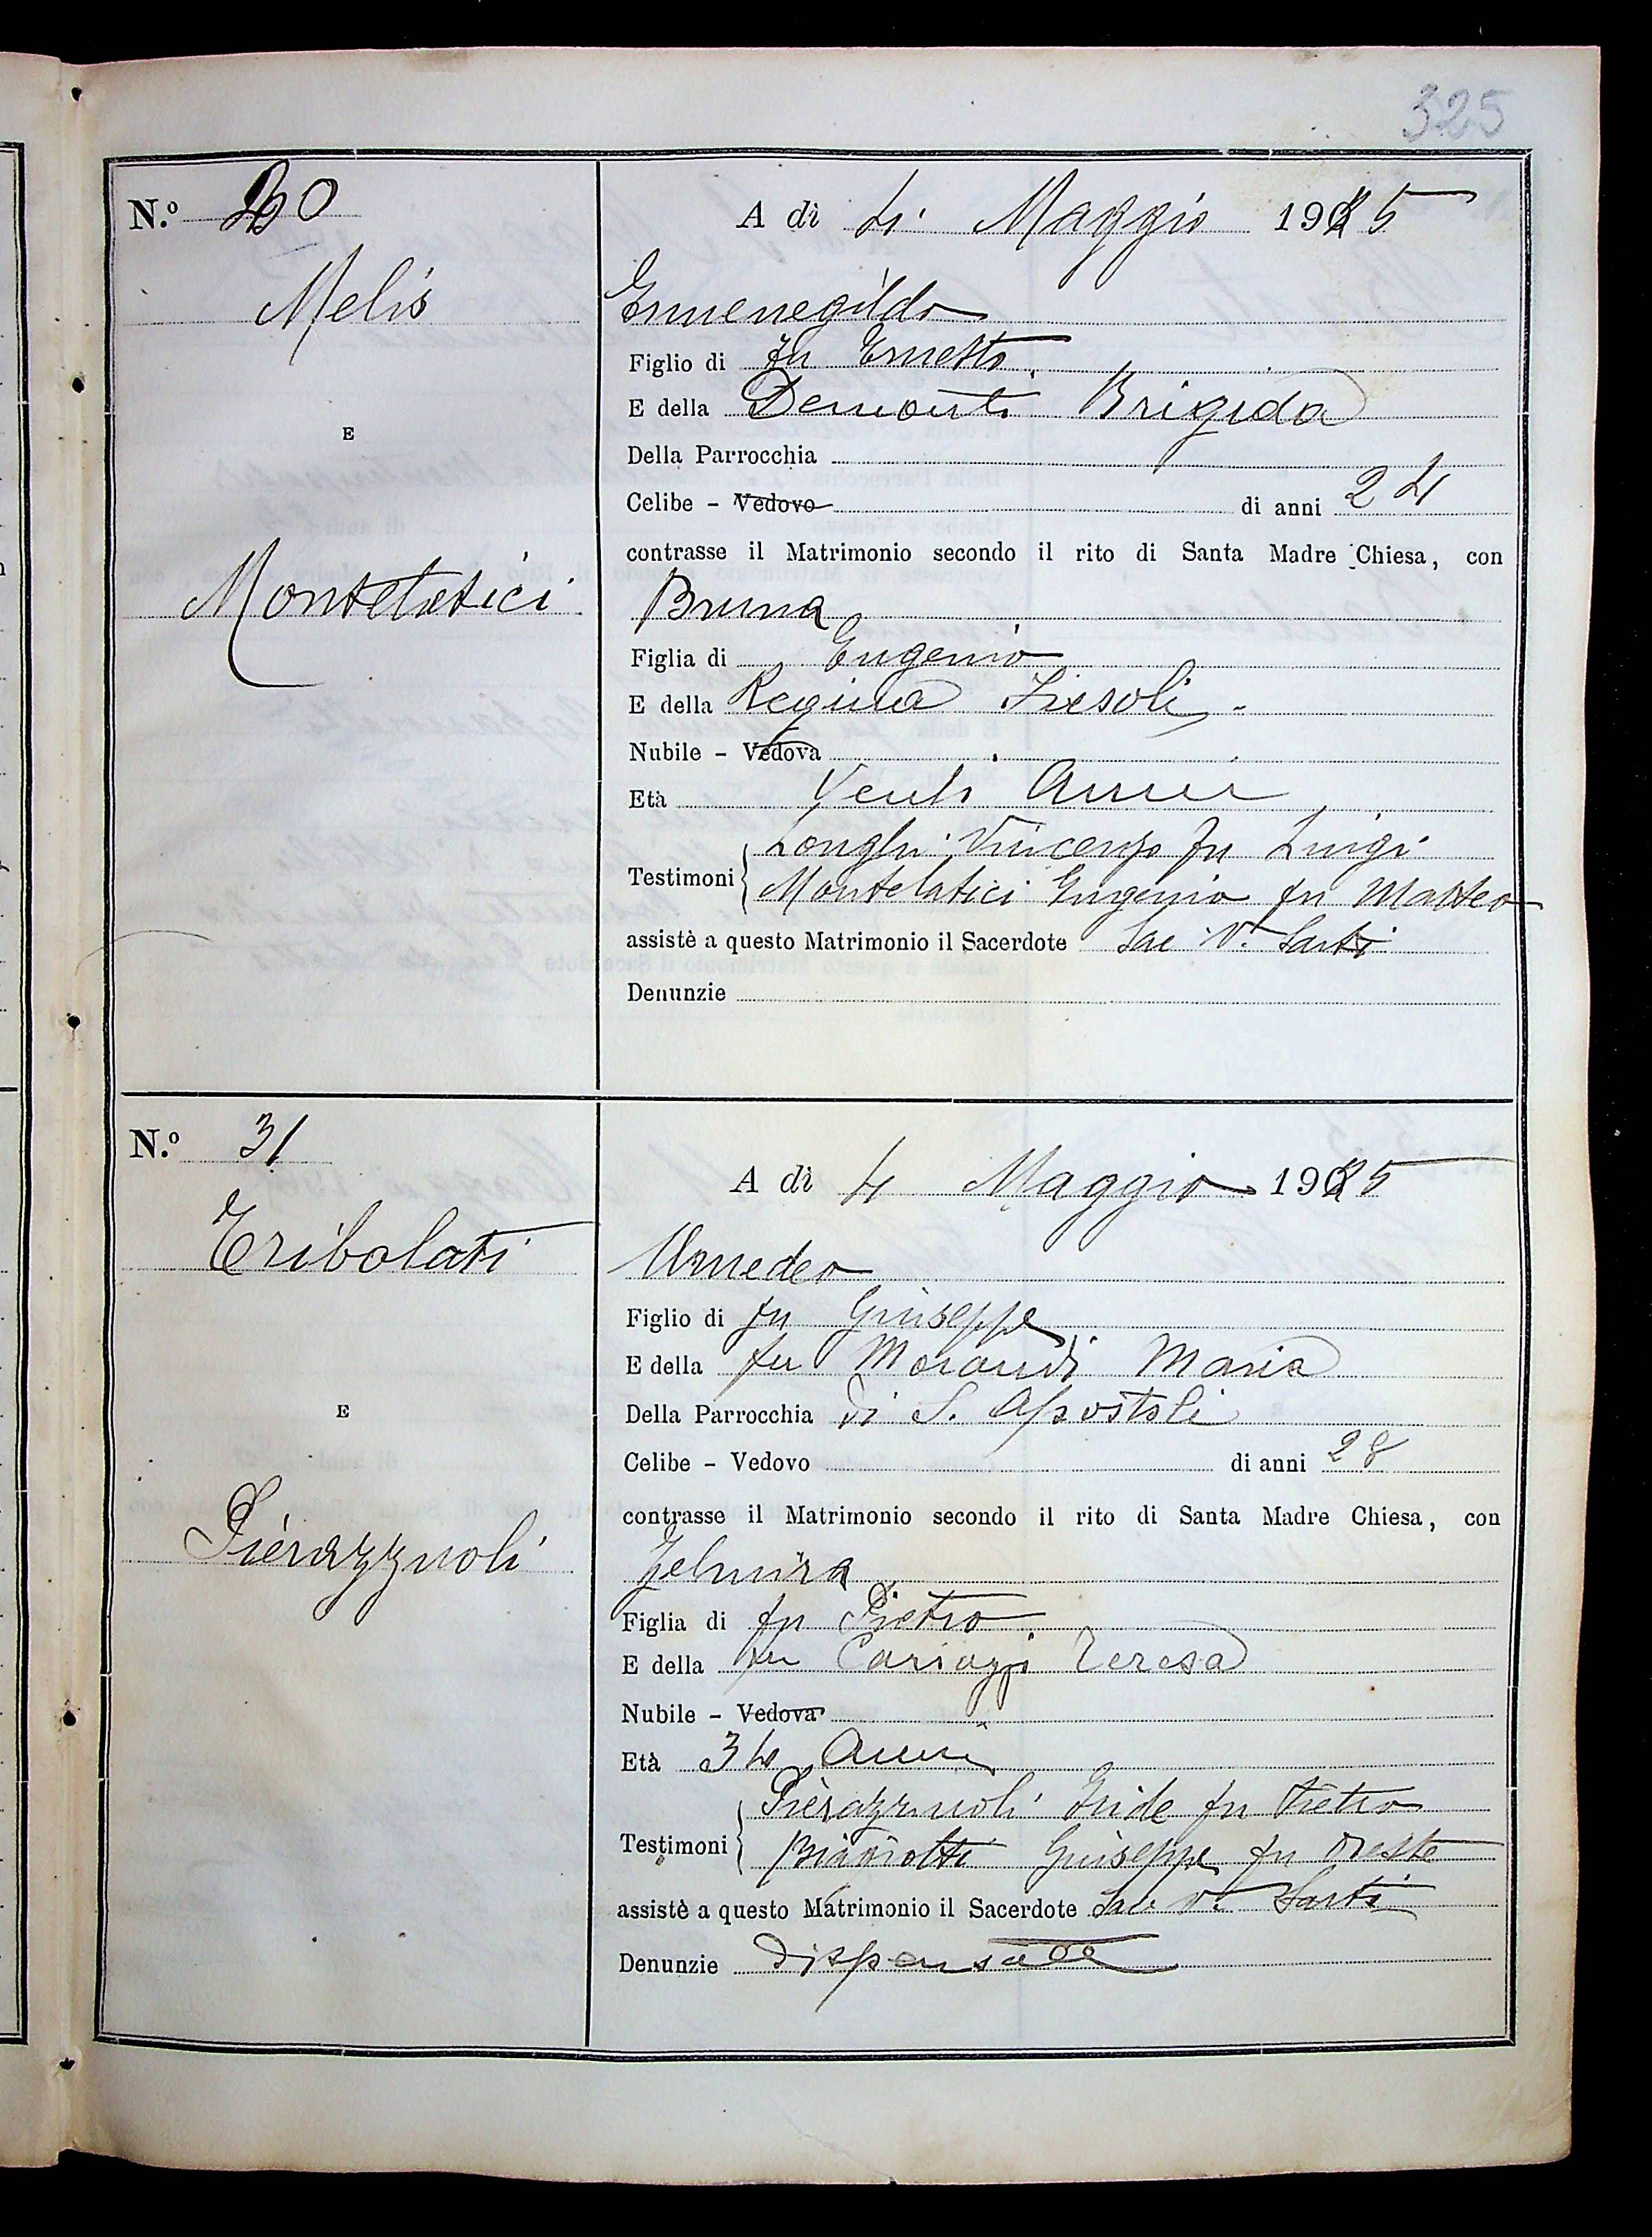 325
N.º 30
A dì 4 Maggio 1925
Melis
Ermenegildo
Figlio di fu Ernesto
E della Demonti Brigida
E
Della Parrocchia
Celibe - Vedovo di anni 24
contrasse il Matrimonio secondo il rito di Santa Madre Chiesa, con
Montelatici
Bruna
Figlia di Eugenio
E della Regina Fiesoli
Nubile - Vedova
Età Venti Anni
Longhi Vincenzo fu Luigi
Testimoni
Montelatici Eugenio fu Matteo
assistè a questo Matrimonio il Sacerdote Sac V. Sarti
Denunzie
N.º 31
A dì 4 Maggio 1925
Tribolati
Amedeo
Figlio di fu Giuseppe
E della fu Morandi Maria
E
Della Parrocchia di S. Apostoli
Celibe - Vedovo di anni 28
contrasse il Matrimonio secondo il rito di Santa Madre Chiesa, con
Pierazzuoli
Zelmira
Figlia di fu Pietro
E della fu Teresa
Nubile - Vedova
Età 34 Anni
Pierazzuoli fu Pietro
Testimoni
Giuseppe fu Oreste
assistè a questo Matrimonio il Sacerdote Sac V. Sarti
Denunzie Dispensate